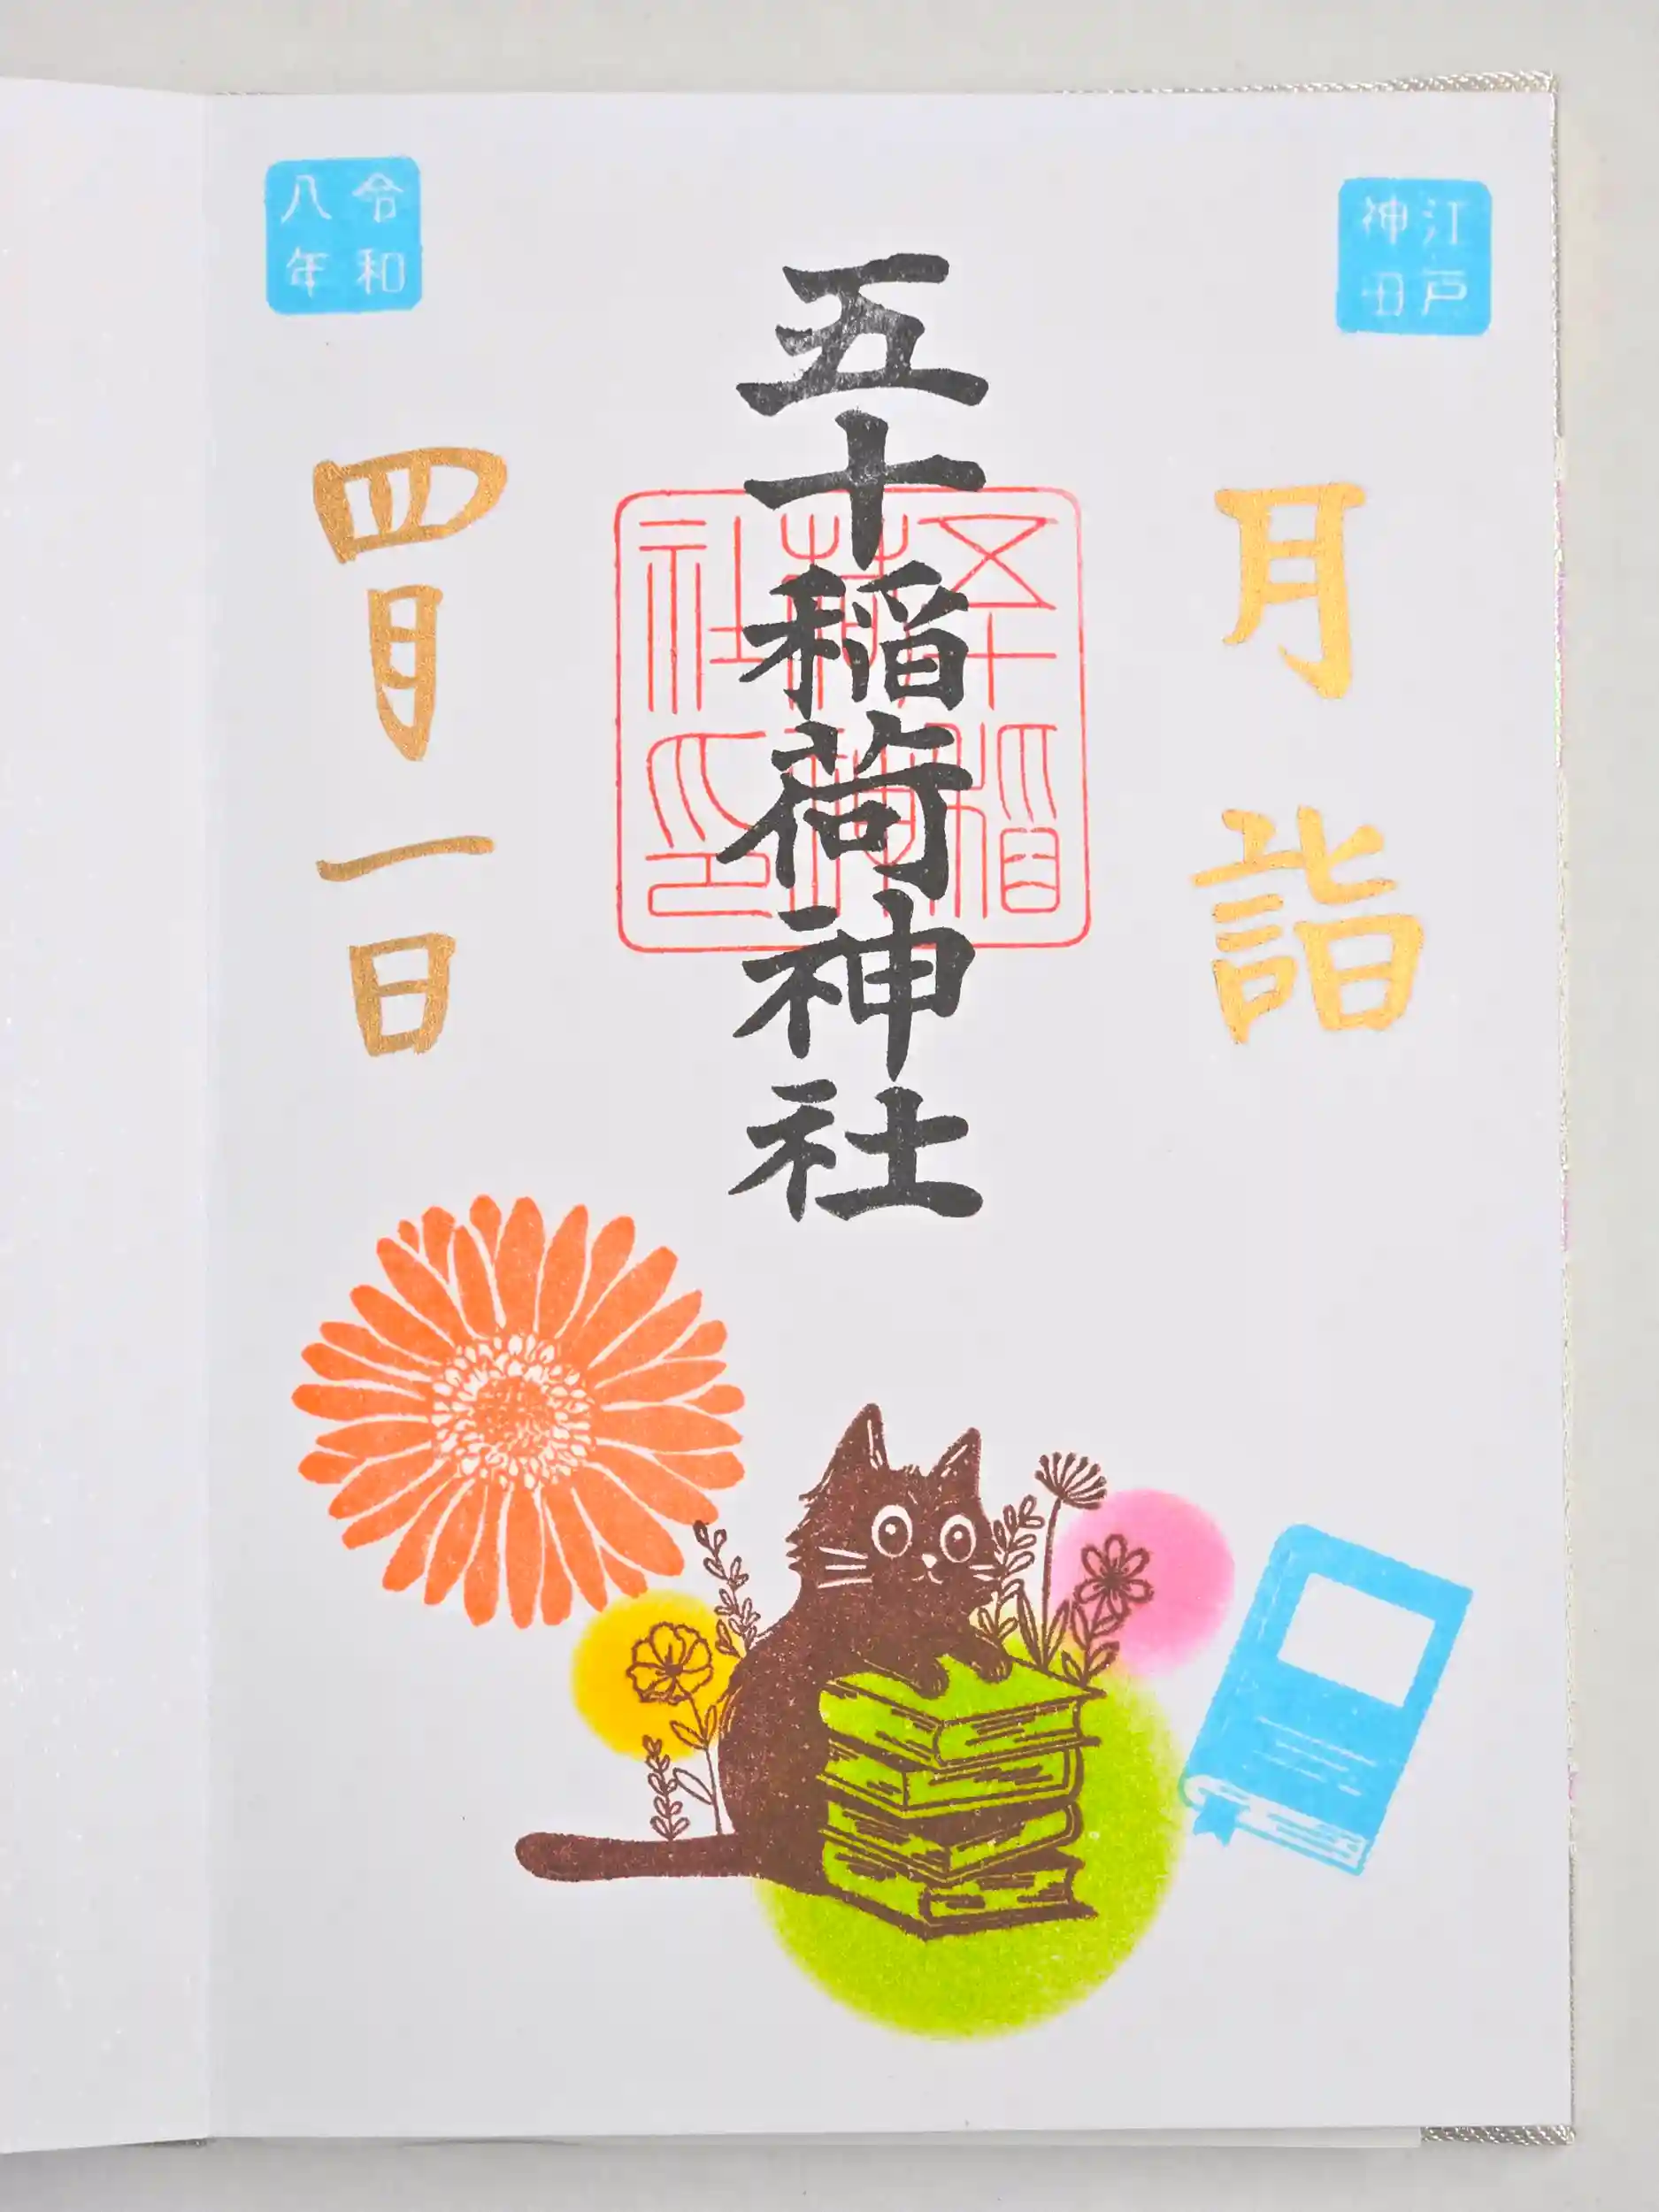 江戸神田
月詣
五十稲荷神社
五十稲荷神社印
令和八年
四月一日